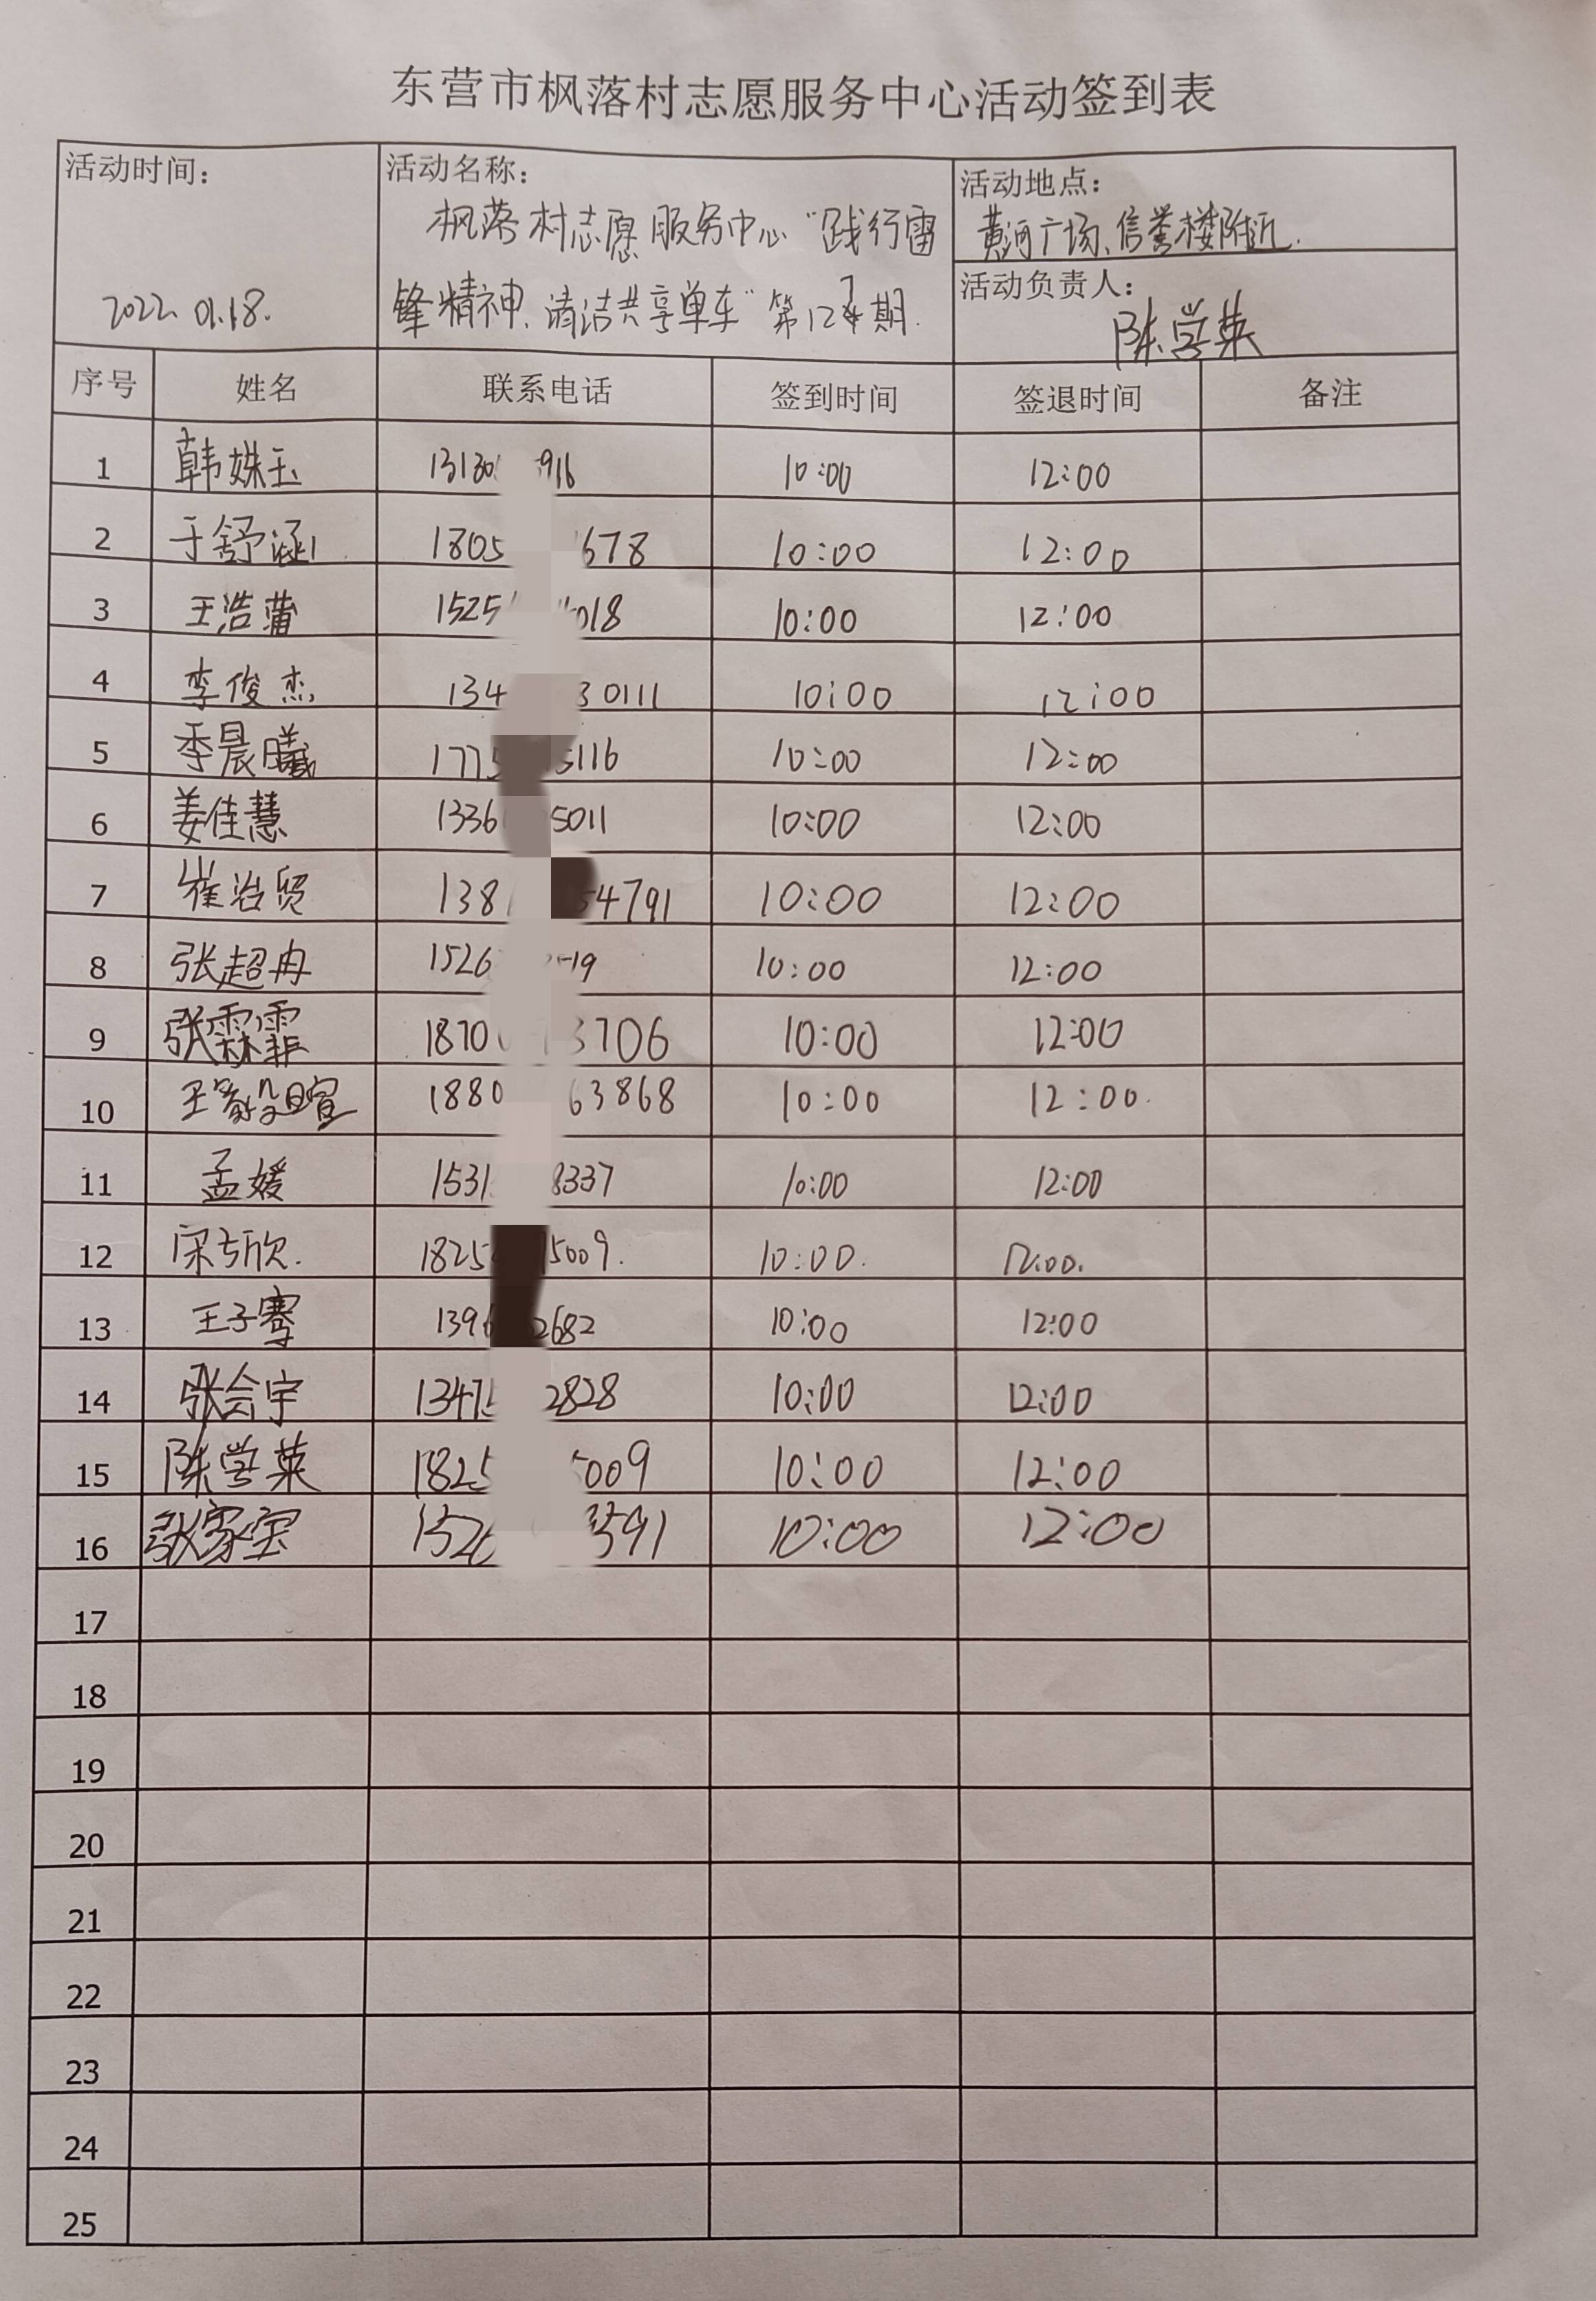 东营市枫落村志愿服务中心活动签到表
活动时间： 活动名称： 活动地点：
枫落村志愿服务中心“践行雷 黄河广场、信誉楼附近.
锋精神、清洁共享单车”第127期. 活动负责人：
2022.01.18. 陈学英
序号 姓名 联系电话 签到时间 签退时间 备注
1 韩姝玉 13130 916 10:00 12:00
2 于舒涵 1805 678 10:00 12:00
3 王浩蒲 1525 018 10:00 12:00
4 李俊杰 134 30111 10:00 12:00
5 季晨曦 1775 5116 10:00 12:00
6 姜佳慧 1336 5011 10:00 12:00
7 崔浩贸 138 54791 10:00 12:00
8 张超冉 1526 19 10:00 12:00
9 张霖霏 1870 3706 10:00 12:00
10 王 1880 63868 10:00 12:00.
11 孟媛 1531 8337 10:00 12:00
12 宋 欣. 1825 5009. 10:00. 12:00.
13 王子骞 1396 2682 10:00 12:00
14 张会宇 13475 2828 10:00 12:00
15 陈学英 1825 5009 10:00 12:00
16 张家宝 1526 3591 10:00 12:00
17
18
19
20
21
22
23
24
25